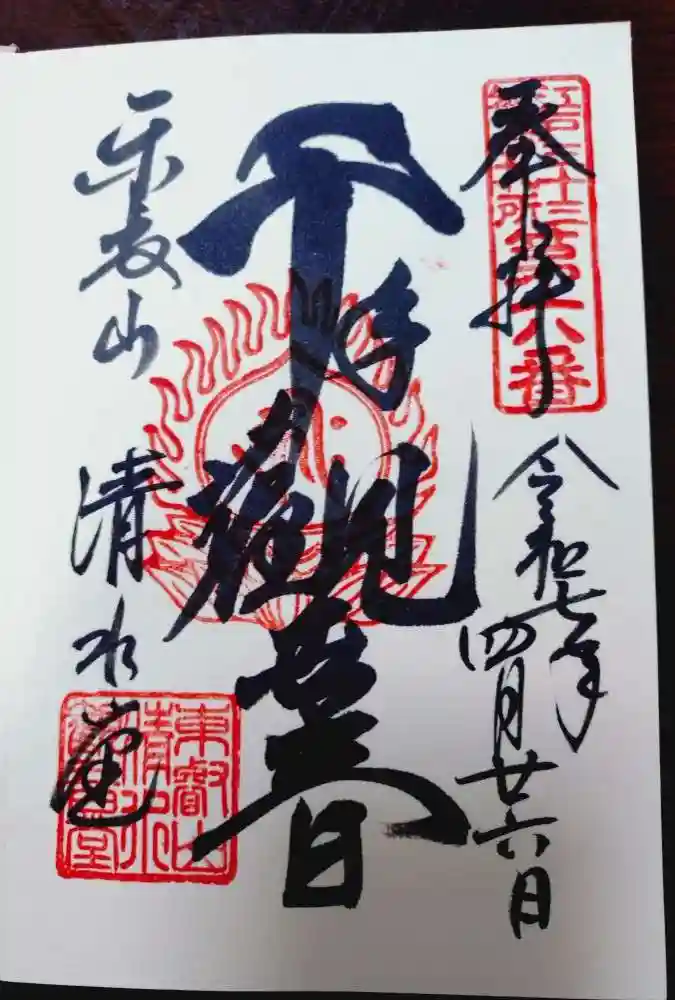 奉拝
江戸三十三
所
第六番
令和七年
四月廿六日
千手觀音
東叡山
清水堂
東叡山
清水
觀音堂